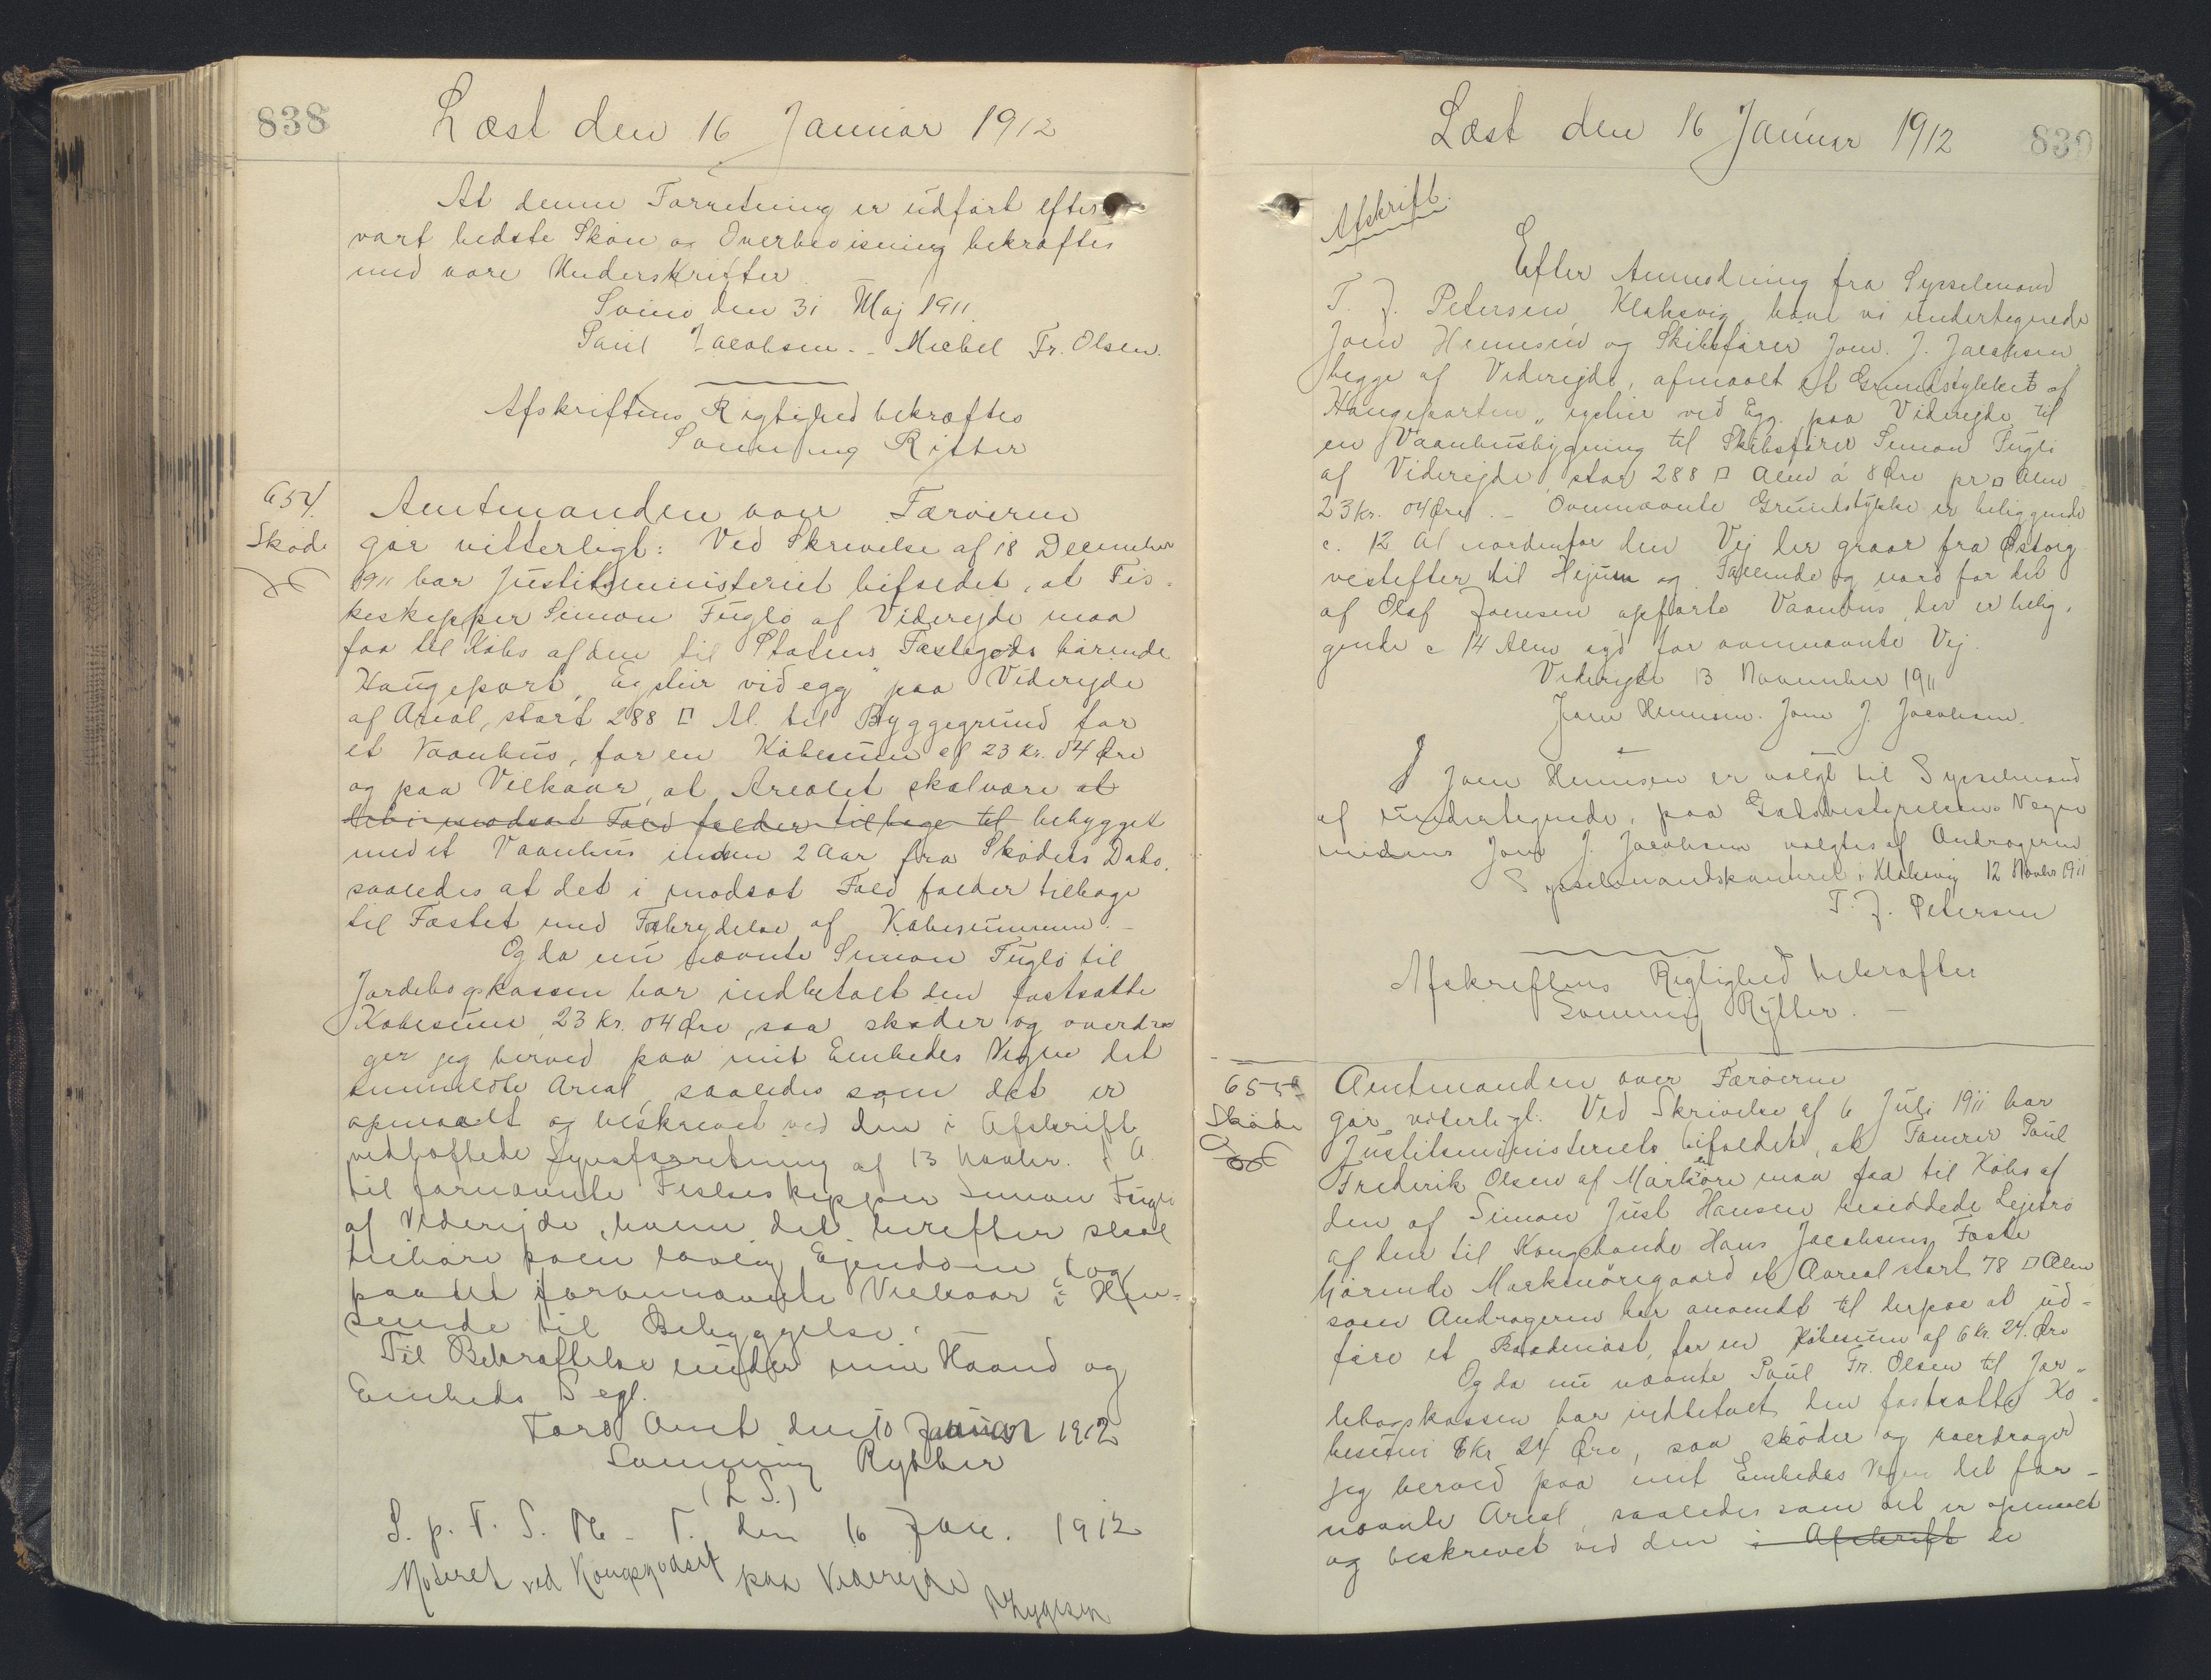 838
Læst den 16 Januar 1912
At denne Forretning er udført efter
vort bedste Skøn og Overbevisning bekræftes
med vore Underskrifter
Svinø den 31 Maj 1911.
Paul Jacobsen. - Michel Fr. Olsen.
Afskriftens Rigtighed bekræftes
Sønning Rytter
654.
Skøde
Amtmanden over Færøerne
gør vitterligt: Ved Skrivelse af 18 December
1911 har Justitsministeriet bifaldet, at Fis-
keskipper Simon Fuglø af Viderejde maa
faa til Købs af den til Statens Fæstegods hørende
Haugepart, "Egstur við egg" paa Viderejde
af Areal, stort 288 □ Al. til Byggegrund for
et Vaanhus, for en Købesum af 23 Kr. 04 Øre
og paa Vilkaar, at Arealet skal være at
det i modsat Fald falder tilbage til bebygget
med et Vaanhus inden 2 Aar fra Skødets Dato,
saaledes at det i modsat Fald falder tilbage
til Fæstet med Fabrydelse af Købesummen. -
Og da nu nævnte Simon Fuglø til
Jordebogskassen har indbetalt den fastsatte
Købesum, 23 Kr. 04 Øre, saa skøder og overdra
ger jeg herved paa mit Embedes Vegne det
anmeldte Areal, saaledes som det er
opmaalt og beskrevet ved den i Afskrift
vedhæftede Synsforretning af 13 Novbr. f. A.
til fornævnte Fiskeskipper Simon Fuglø
af Viderejde, hvem det herefter skal
tilhøre som lovlig Ejendom, dog
paa det forannævnte Vilkaar i Hen-
seende til Bebyggelse.
Til Bekræftelse under min Haand og
Embeds Segl.
Færø Amt den 10 Januar 1912
Sønning Rytter
(L S.)
S. p. F. S. M - T. den 16 Jan. 1912
Noteret ved Kongsgodset paa Viderejde
839
Læst den 16 Januar 1912
Afskrift.
Efter Anmodning fra Sysselmand
T. J. Petersen Klaksvig, have vi undertegnede
Joen Hennsen og Skibsfører Joen. J. Jacobsen
begge af Viderejde, afmaalt et Grundstykket af
Haugeparten "ystur við Egg" paa Viderejde til
en Vaanhusbygning til Skibsfører Simon Fuglø
af Viderejde, stor 288 □ Alen á 8 Øre pr □ Alen
23 kr. 04 Øre. - Ovennævnte Grundstykke er beliggende
c. 12 Al nordenfor den Vej der graar fra Østorg
vestefter til og og nord for det
af Olaf Joensen opførte Vaanhus, der er belig.
gende c 14 Alen syd for ovennævnte Vej.
Viderejde 13 November 1911
Joen Hennsen. Joen J. Jacobsen.
Joen Hennsen er valgt til Sysselmand
af undertegnede, paa Godsbestyrelsens Vegne
medens Joen J. Jacobsen valgtes af Andrageren
Sysselmandskontoret i Klaksvig 12 Novbr 1911
T. J. Petersen
Afskriftens Rigtighed bekræfter
Sønning Rytter. -
655
Skøde
Amtmanden over Færøerne
gør vitterligt: Ved Skrivelse af 6 Juli 1911 har
Justitsministeriets bifaldet, at Tømrer Poul
Frederik Olsen af Markøre maa faa til Købs af
den af Simon Just Hansen besiddede Lejetrø
af den til Kongsbonde Hans Jacobsens Fæste
hørende Marknöregaard et Aareal stort 78 □ Alen
som Andrageren har anvendt til derpaa at ud-
føre et Baadenøst, for en Købesum af 6 Kr. 24 Øre
Og da nu nævnte Poul Fr. Olsen til Jor-
debogskassen har indbetalt den fastsatte Kø-
besum 6 kr 24 Øre, saa skøder og overdrager
jeg herved paa mit Embedes Vegne det for-
nævnte Areal, saaledes som det er opmaalt
og beskrevet ved den i Afskrift de